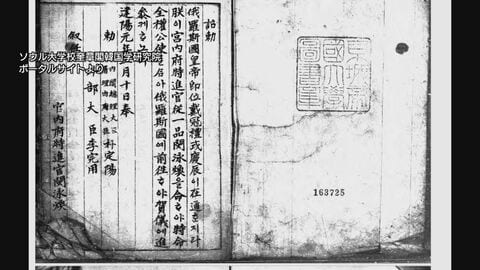 ソウル大学校奎章閣韓国学研究院
ポータルサイトより
京城帝
國大學
圖書章
163725
詔勅
俄羅斯國皇帝即位戴冠禮式慶辰이在邇ᄒᆞᆫ지라
朕이宮內府特進官從一品閔泳煥을命ᄒᆞ야特命
全權公使로俄羅斯國에前往ᄒᆞ야賀儀에進
參케ᄒᆞ노라
建陽元年月十日奉
勅
朴定陽
部大臣李完用
宮內府特進官閔泳煥